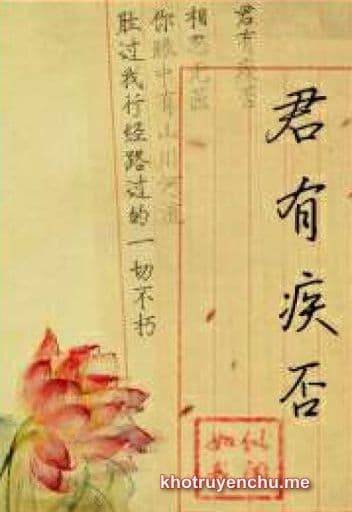 君有疾否
君有疾否
相思无医
你眼中有山川河流
胜过我行经路过的一切不朽
如似
我闻
khotruyenchu.me